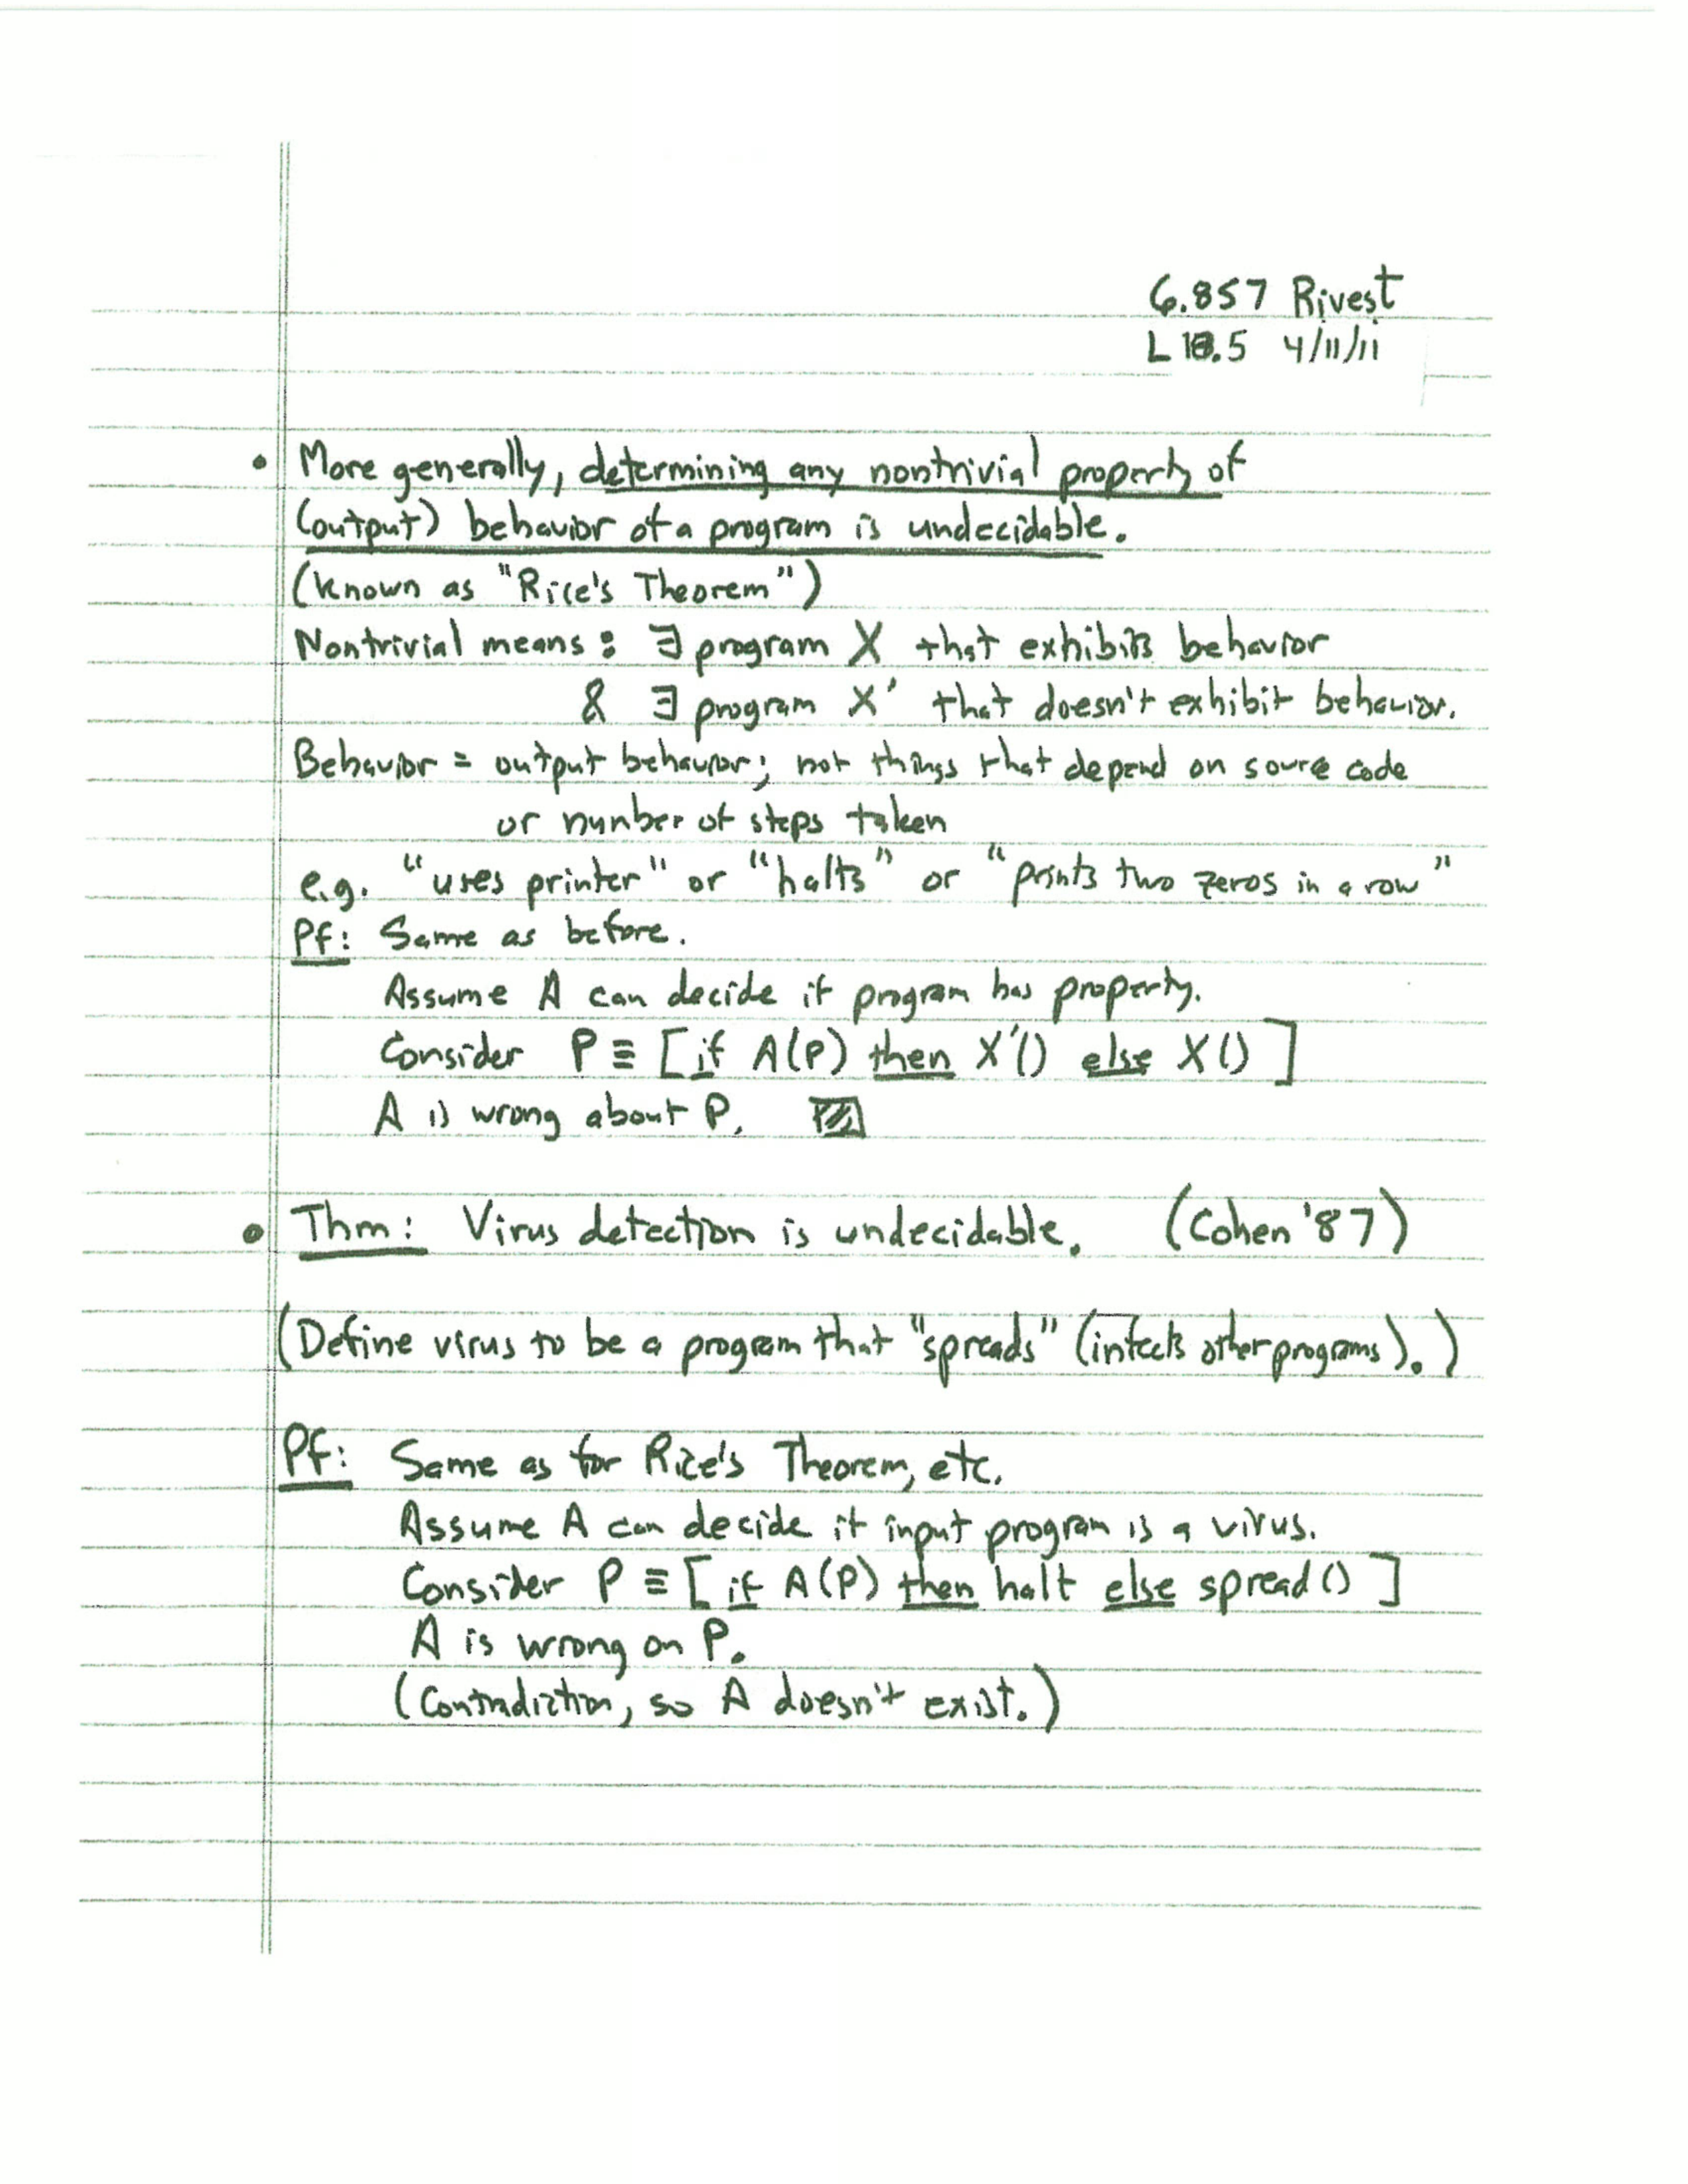 6.857 Rivest
L 18.5 4/11/11
• More generally, determining any nontrivial property of
(output) behavior of a program is undecidable.
(known as "Rice's Theorem")
Nontrivial means: ∃ program X that exhibits behavior
& ∃ program X' that doesn't exhibit behavior.
Behavior = output behavior; not things that depend on source code
or number of steps taken
e.g. "uses printer" or "halts" or "prints two zeros in a row"
Pf: Same as before.
Assume A can decide if program has property.
Consider P ≡ [if A(P) then X'() else X()]
A is wrong about P.
• Thm: Virus detection is undecidable. (Cohen '87)
(Define virus to be a program that "spreads" (infects other programs).)
Pf: Same as for Rice's Theorem, etc.
Assume A can decide if input program is a virus.
Consider P ≡ [if A(P) then halt else spread()]
A is wrong on P.
(Contradiction, so A doesn't exist.)